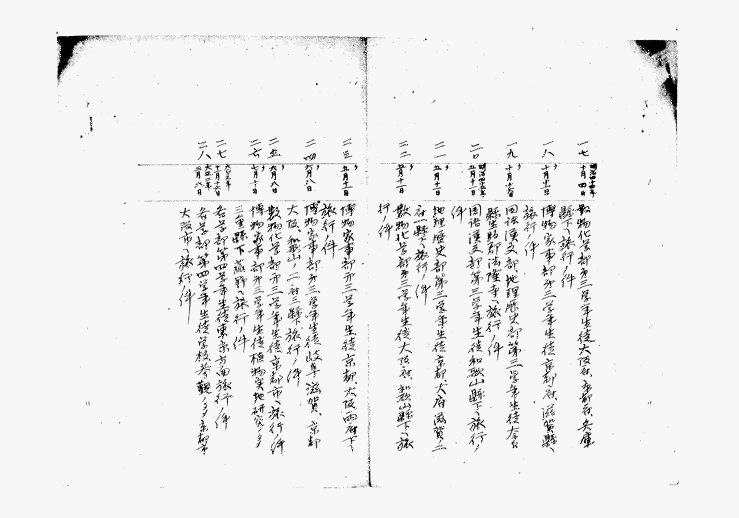 一七
明治四十四年
十月四日
数物化学部第三学年生徒大阪府、京都府、兵庫
縣下ヘ旅行ノ件
一八
十月十日
博物家事部第三学年生徒京都府、滋賀縣ヘ
旅行ノ件
一九
十月十六日
国語漢文部地理歴史部第三学年生徒奈良
縣生駒郡法隆寺ヘ旅行ノ件
二〇
明治四十五年
五月十一日
国語漢文部第三学年生徒和歌山縣下ヘ旅行ノ
件
二一
〃
五月十一日
地理歴史部第三学年生徒京都、大府滋賀二
府縣下ヘ旅行ノ件
二二
〃
五月十一日
数物化学部第三学年生徒大阪府、和歌山縣下ヘ旅
行ノ件
二三
〃
五月十一日
博物家事部第三学年生徒京都、大阪両府下ヘ
旅行ノ件
二四
〃
六月八日
博物家事部第三学年生徒岐阜、滋賀、京都
大阪、和歌山ノ二府三縣下旅行ノ件
二五
〃
六月八日
数物化学部第三学年生徒京都市ヘ旅行ノ件
二六
〃
七月十日
博物家事部第三学年生徒植物実地研究ノタメ
三重縣下菰野ヘ旅行ノ件
二七
大正元年
十月十六日
各学部第四学年生徒東京方面旅行ノ件
二八
大正二年
二月八日
各学部第四学年生徒学校参観ノタメ京都市
大阪市ヘ旅行ノ件